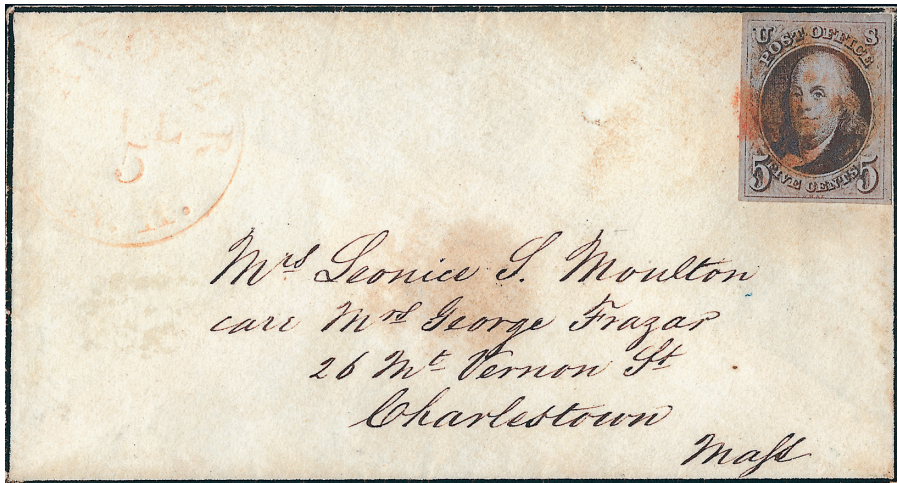 U S
POST OFFICE
5 FIVE CENTS 5
Mrs Leonice S. Moulton
care Mrs George Frazar
26 Mt Vernon St
Charlestown
Mass